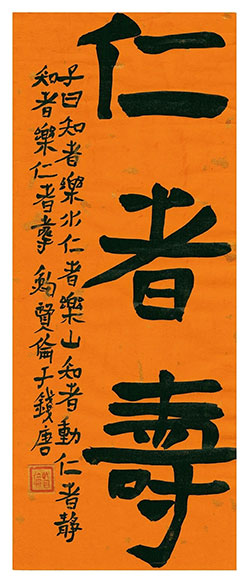 仁者壽
子曰知者樂水仁者樂山知者動仁者靜
知者樂仁者壽 鮑賢倫于錢唐